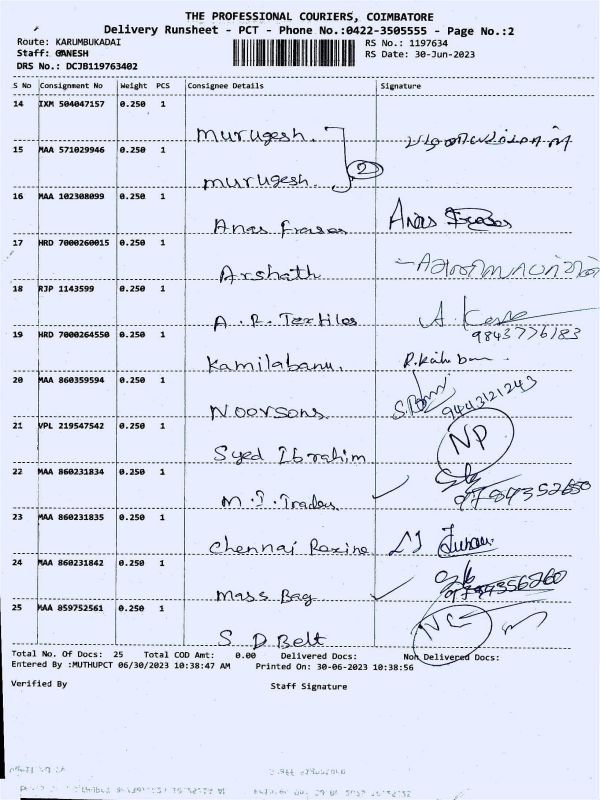 THE PROFESSIONAL COURIERS, COIMBATORE
Delivery Runsheet - PCT - Phone No.:0422-3505555 - Page No.:2
Route: KARUMBUKADAI
RS No.: 1197634
Staff: GANESH
RS Date: 30-Jun-2023
DRS No.: DCJB119763402
S No Consignment No Weight PCS Consignee Details Signature
14 IXM 504047157 0.250 1
Murugesh.
15 MAA 571029946 0.250 1
Murugesh. 2
16 MAA 102308099 0.250 1
Anas Frases Anas Frases
17 HRD 7000260015 0.250 1
Arshath
18 RJP 1143599 0.250 1
A. R. Textiles
9843776183
19 HRD 7000264550 0.250 1
Kamilabanu.
20 MAA 860359594 0.250 1
Noorsons 9443121243
21 VPL 219547542 0.250 1
Syed Ibrahim NP
22 MAA 860231834 0.250 1
M.I. Traders
23 MAA 860231835 0.250 1
Chennai Rexine
24 MAA 860231842 0.250 1
Mass Bag
25 MAA 859752561 0.250 1
S D Belt
Total No. Of Docs: 25 Total COD Amt: 0.00 Delivered Docs: Non Delivered Docs:
Entered By :MUTHUPCT 06/30/2023 10:38:47 AM Printed On: 30-06-2023 10:38:56
Verified By Staff Signature